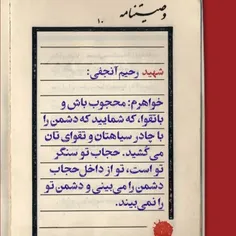 وصیتنامه
۱۰
شهید رحیم آنجفی:
خواهرم: محجوب باش و
باتقوا، که شمایید که دشمن را
با چادر سیاهتان و تقوای تان
می‌کُشید. حجاب تو سنگر
تو است، تو از داخل حجاب
دشمن را می‌بینی و دشمن تو
را نمی‌بیند.